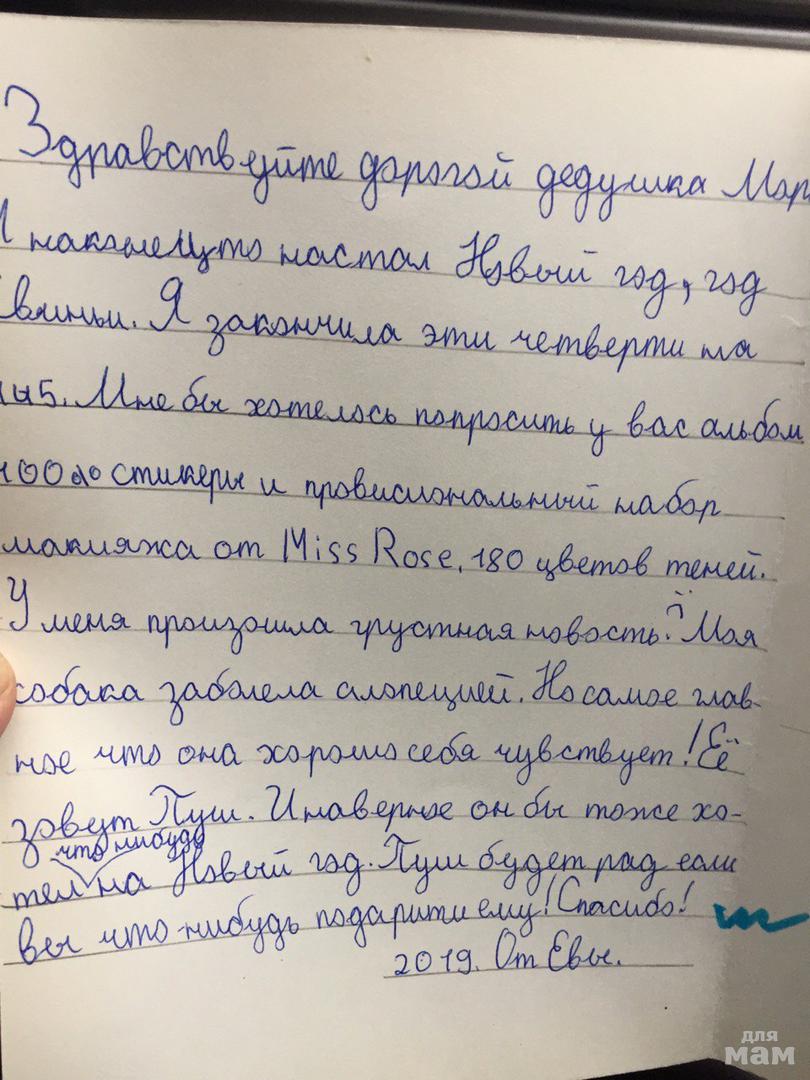 Здравствуйте дорогой дедушка Мор
И наконецто настал Новый год, год
Свиньи. Я закончила эти четверти на
5. Мне бы хотелось попросить у вас альбом
100%  стикеры и провисиональный набор
макияжа от Miss Rose, 180 цветов теней.
У меня произошла грустная новость. Моя
собака заболела алопецией. Но самое глав-
ное что она хорошо себя чувствует! Её
зовут Пуш. И наверное он бы тоже хо-
что нибудь
тел на Новый год. Пуш будет рад если
вы что-нибудь подарити ему! Спасибо!
2019. От Евы.
для
мам